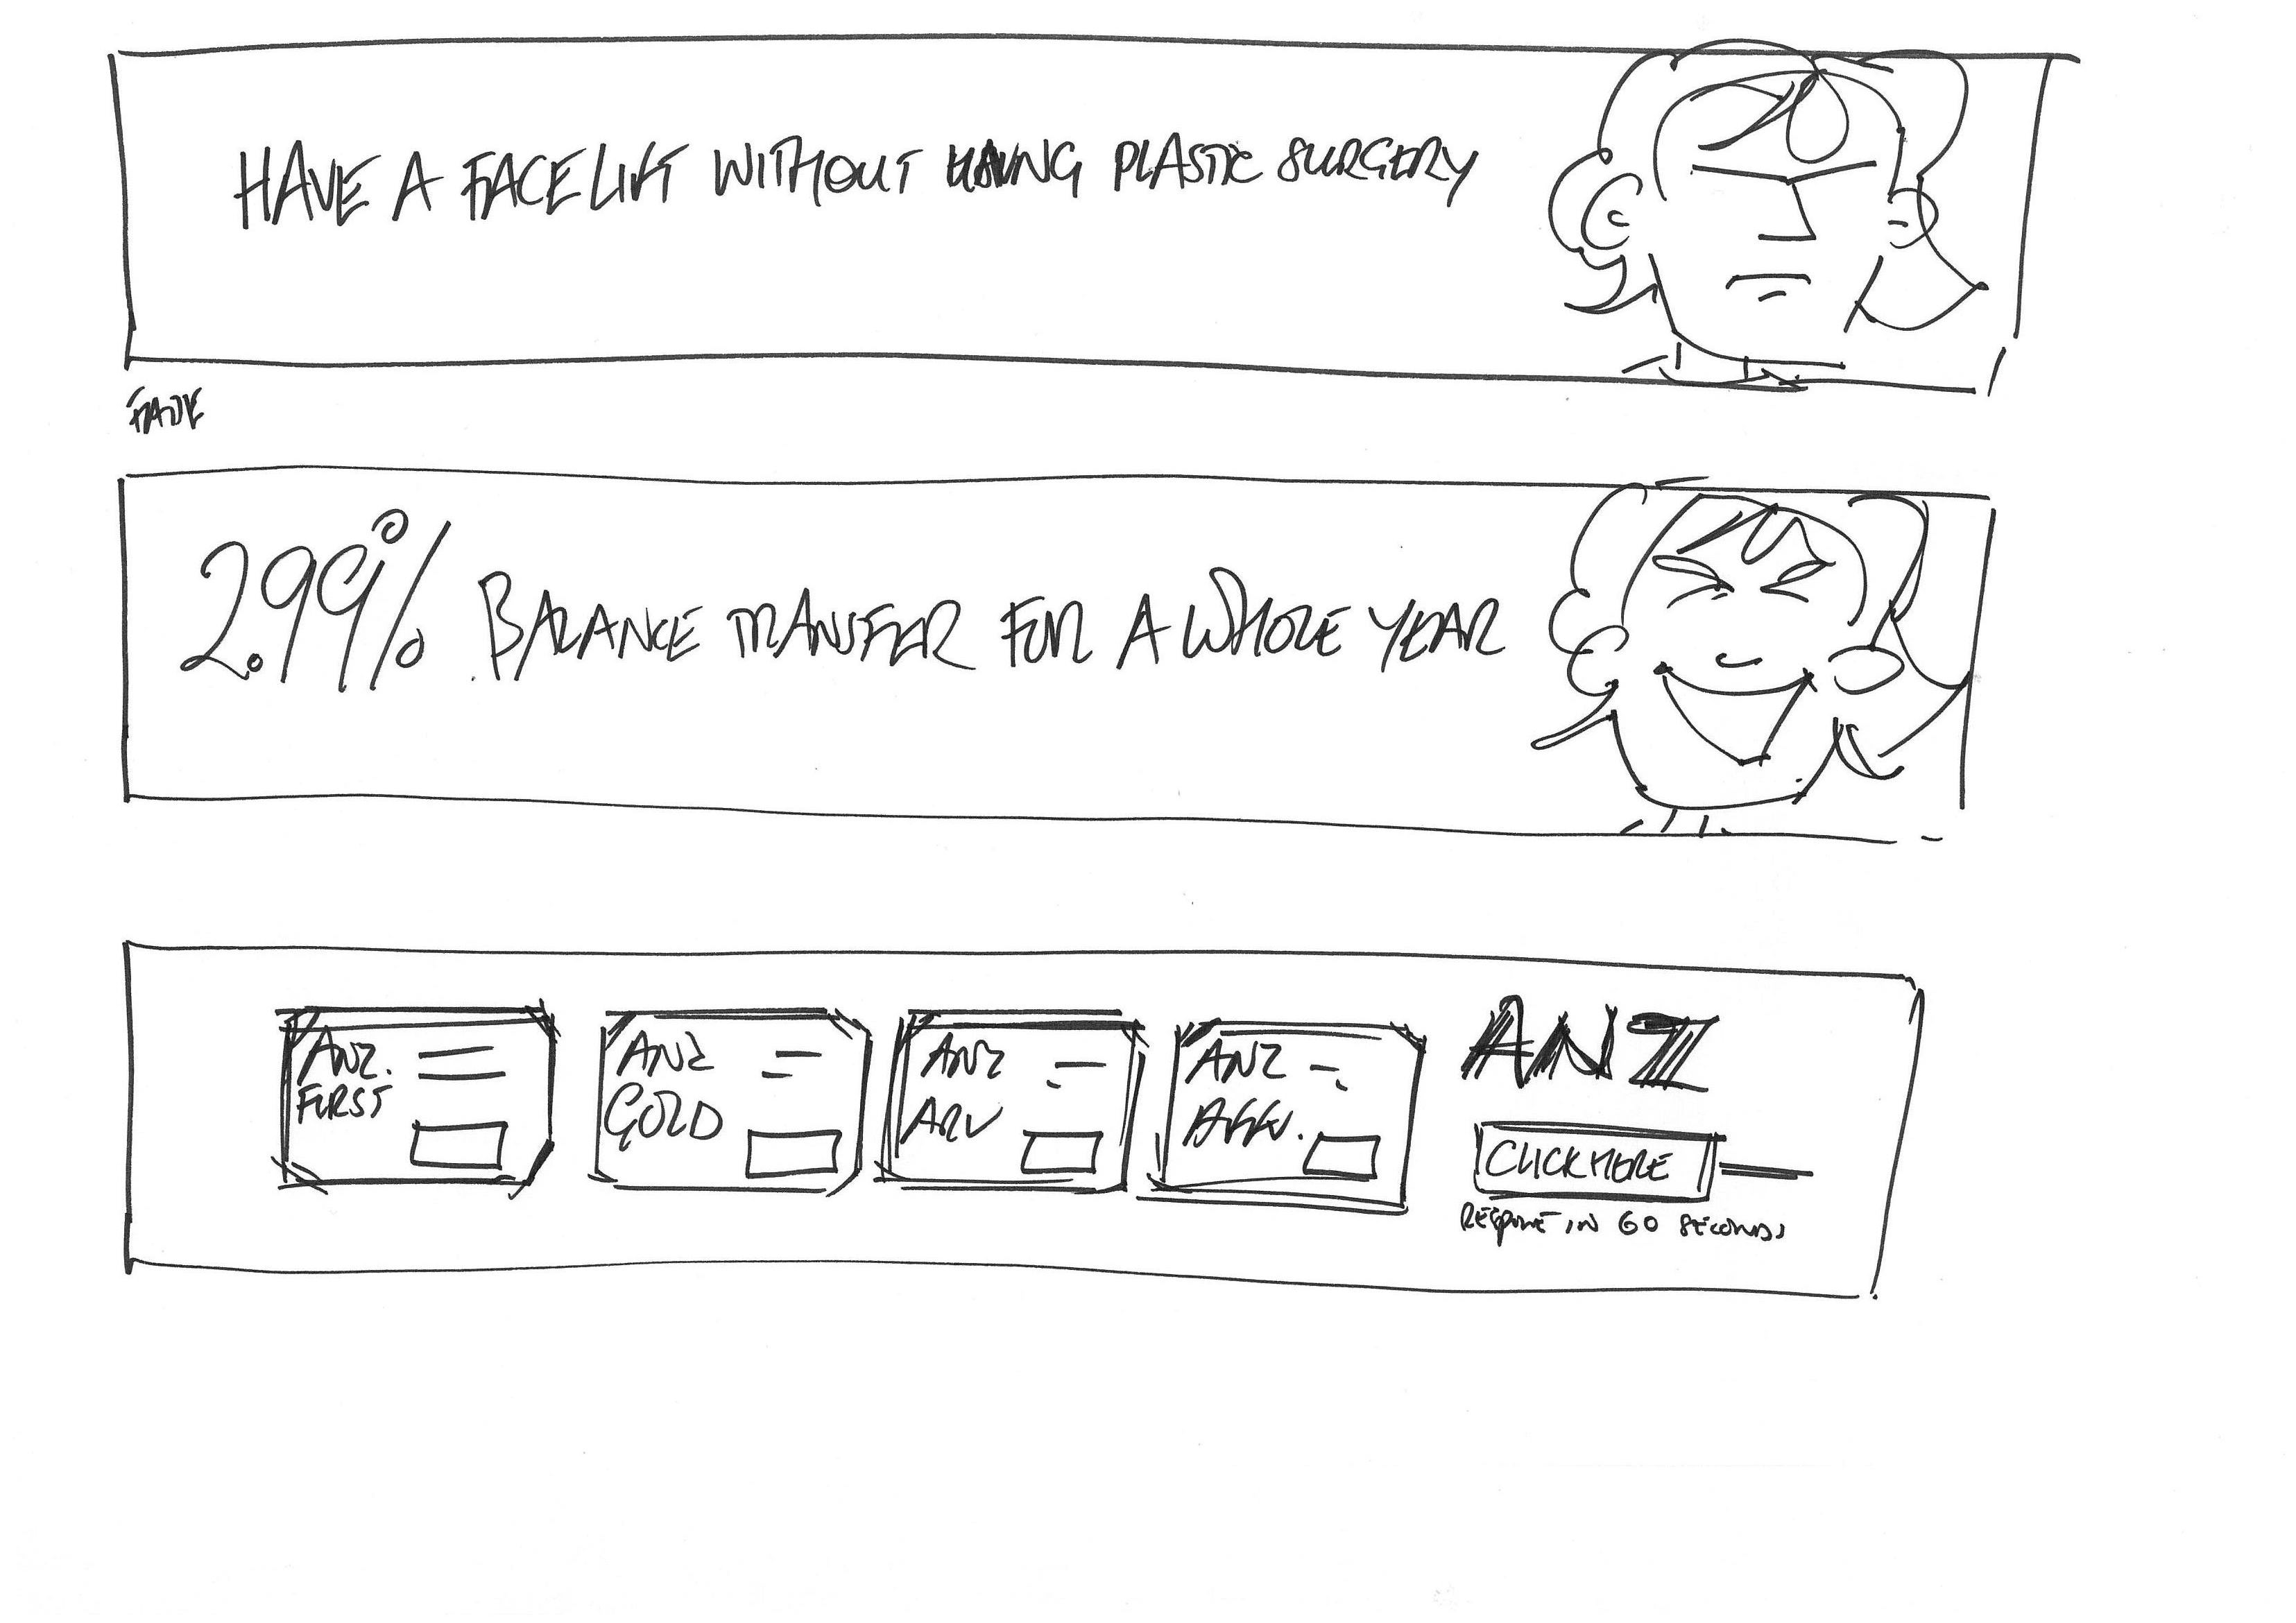 HAVE A FACELIFT WITHOUT HAVING PLASTIC SURGERY
FADE
2.99% BALANCE TRANSFER FOR A WHOLE YEAR
ANZ. FIRST
ANZ GOLD
ANZ
ANZ
ANZ
CLICK HERE
RESPONSE IN 60 SECONDS